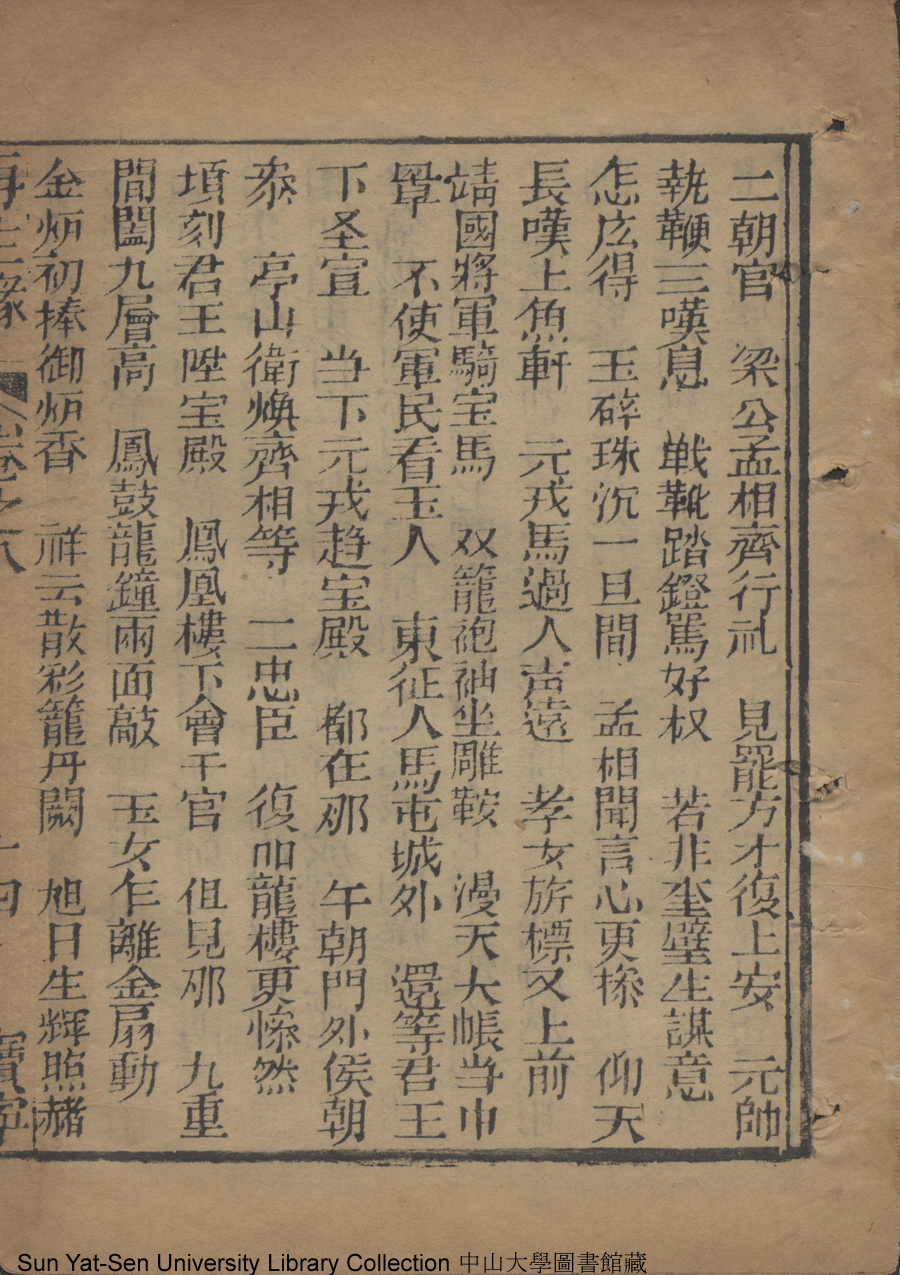 二朝官　梁公孟相齊行礼　見罷方才復上安　元帥
執鞭三嘆息　戦靴踏鐙罵好权　若非奎壁生謀意
怎庅得　玉碎珠沉一旦間　孟相聞言心更摻　仰天
長嘆上魚軒　元戎馬過人声遠　孝女旂標又上前
靖國將軍騎宝馬　双籠袍袖坐雕鞍　漫天大帳当巾
罩　不使軍民看玉人　東征人馬屯城外　還等君王
下圣宣　当下元戎趋宝殿　都在那　午朝門外侯朝
叅　亭山衛煥齊相等　二忠臣　復叩龍樓更慘然
頃刻君王陞宝殿　鳳凰樓下會千官　但見那　九重
閶闔九層高　鳳鼓龍鐘兩面敲　玉女乍離金扇動
金炉初捧御炉香　祥云散彩籠丹闕　旭日生輝照赭
再生緣　卷之八　十四　寶寧
Sun Yat-Sen University Library Collection 中山大學圖書館藏